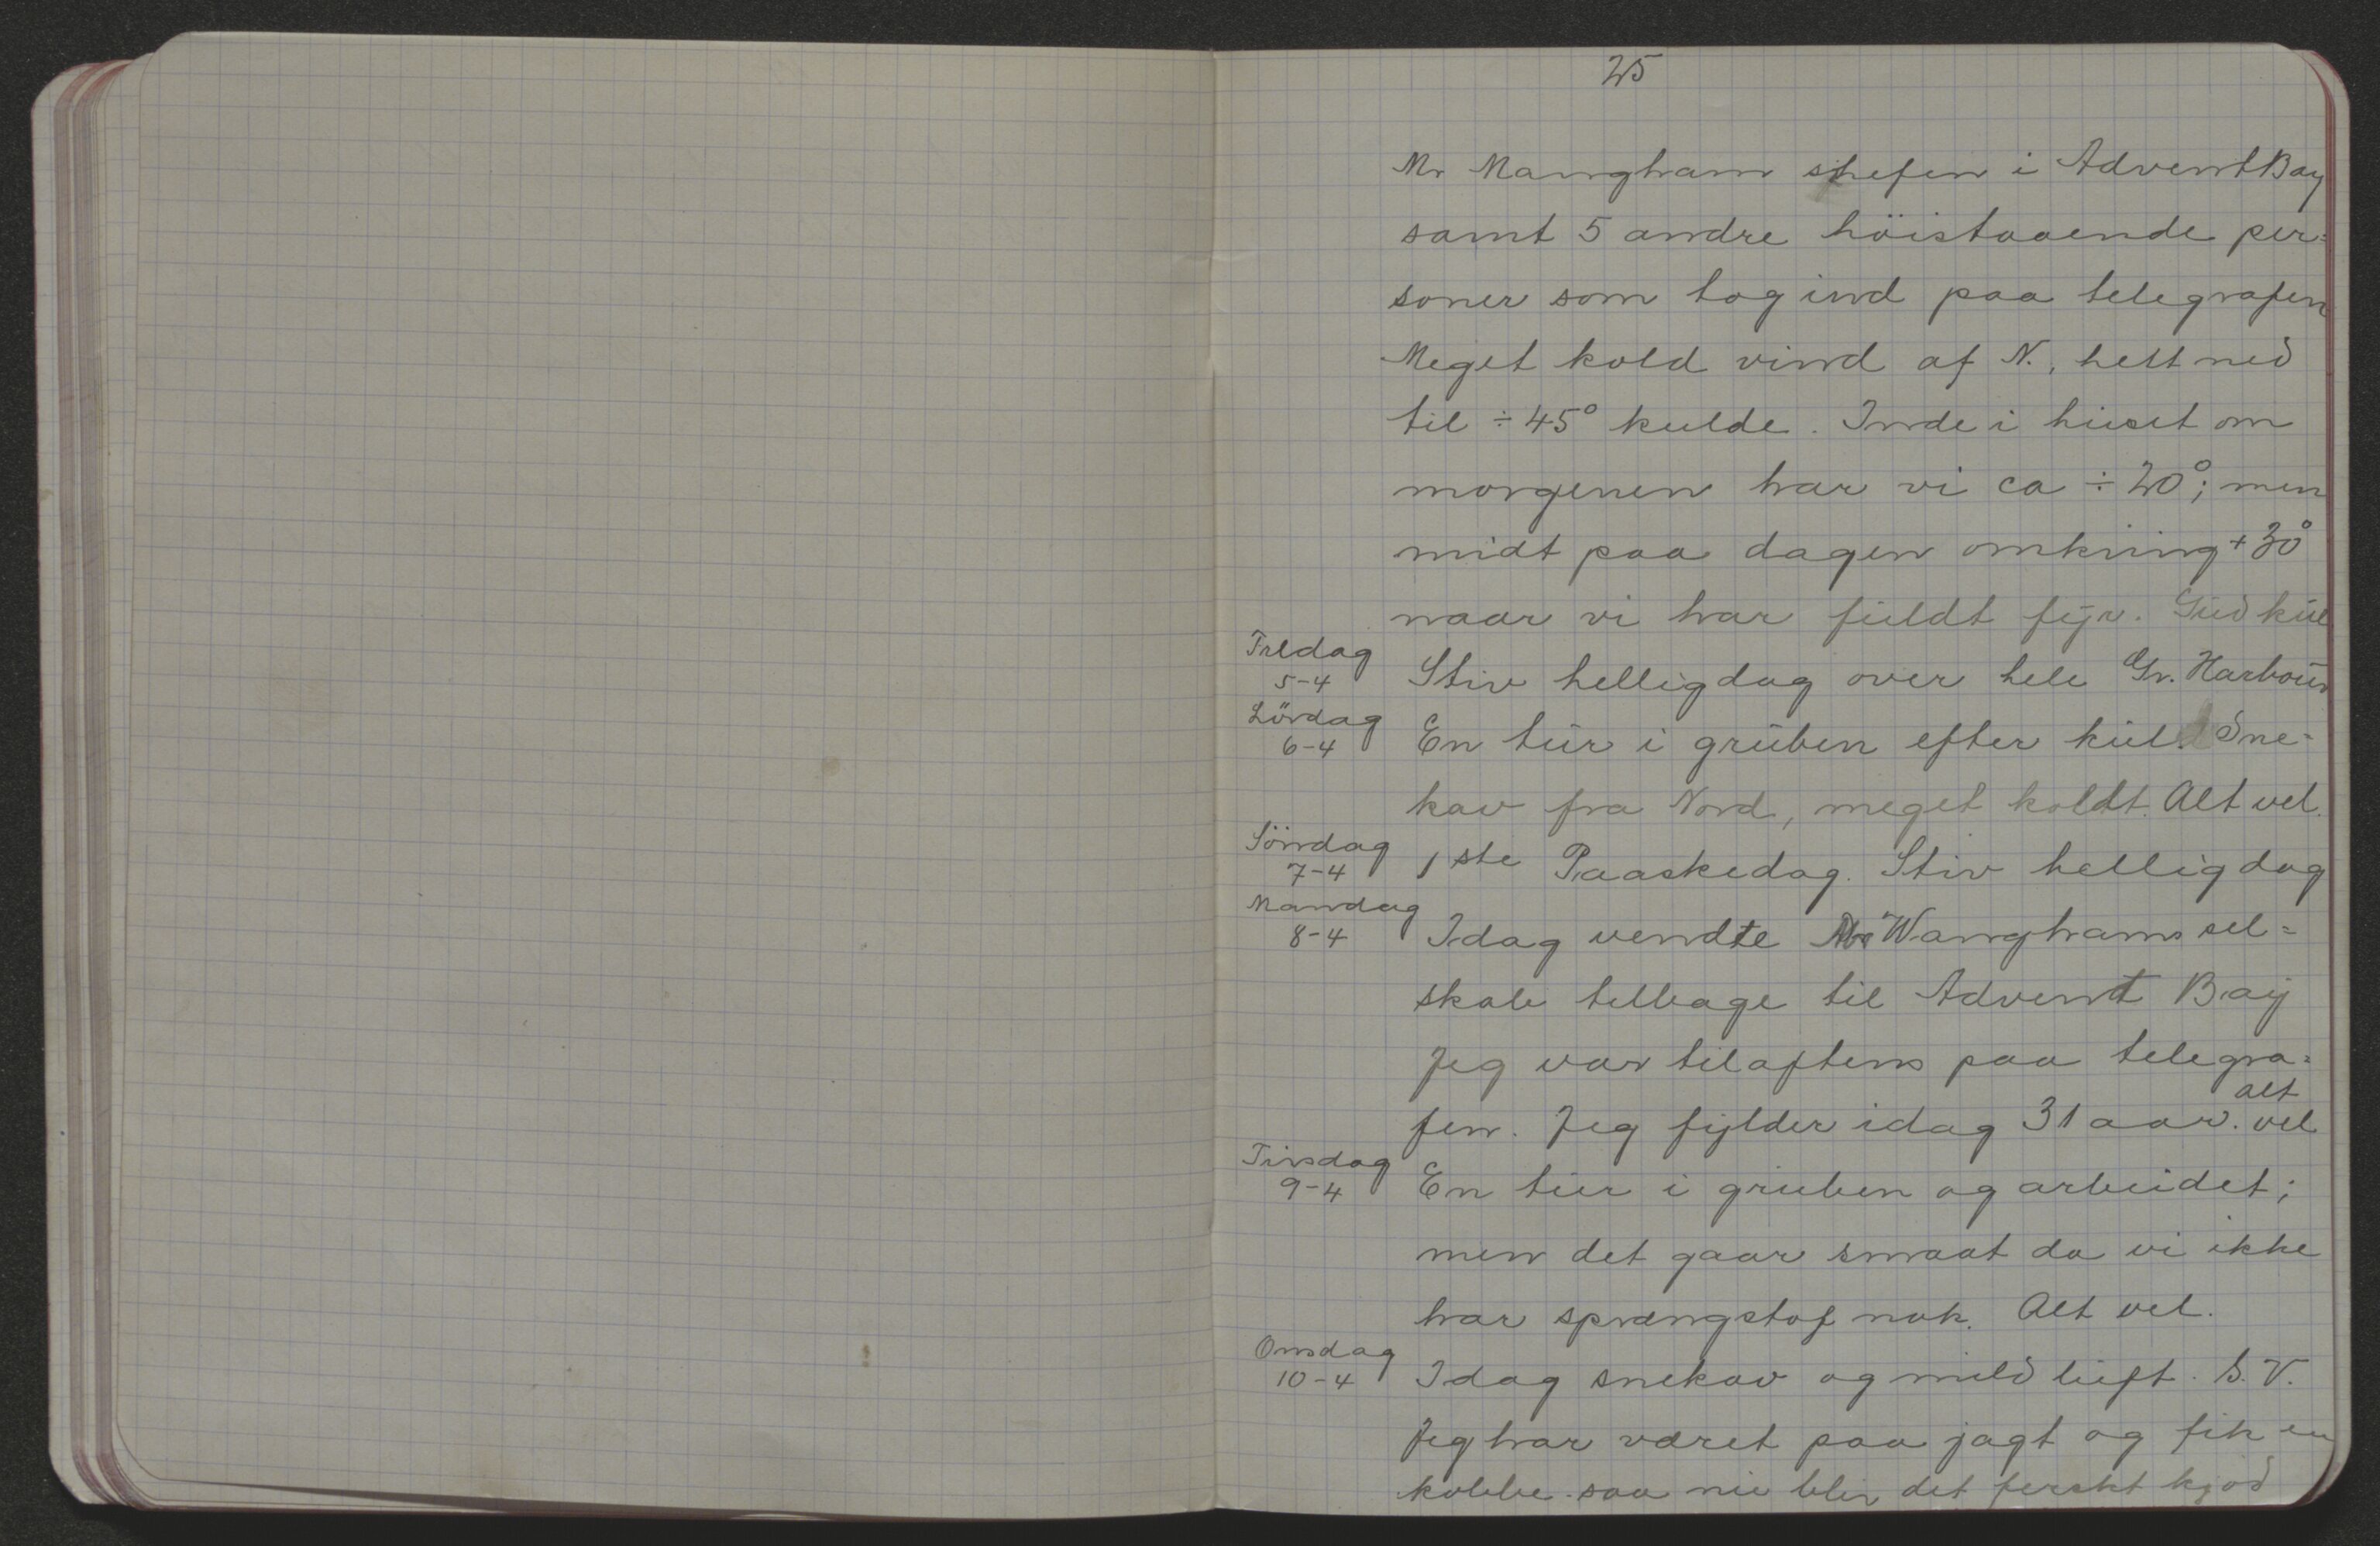 25
Mr Mangham shefen i Advent Bay
samt 5 andre höistaaende per=
soner som tog ind paa telegrafen
Meget kold vind af N., helt ned
til ÷ 45° kulde. Inde i huset om
morgenen har vi ca ÷ 20°; men
midt paa dagen omkring + 30°
naar vi har fuldt fyr.
Fredag
5-4 Stiv helligdag over hele Gr. Harbour
Lördag
6-4 En tur i gruben efter kul. Sne-
kav fra Nord, meget koldt. Alt vel.
Söndag
7-4 1ste Paaskedag. Stiv helligdag
Mandag
8-4 Idag vendte Mr Wanghams sel=
skab tilbage til Advent Bay
Jeg var tilaftens paa telegra=
alt
fen. Jeg fylder idag 31 aar. vel
Tirsdag
9-4 En tur i gruben og arbeidet;
men det gaar smaat da vi ikke
har sprængstof nok. Alt vel.
Onsdag
10-4 Idag snekav og mild luft. S.V.
Jeg har været paa jagt og fik en
kobbe. saa nu blir det ferskt kjöd